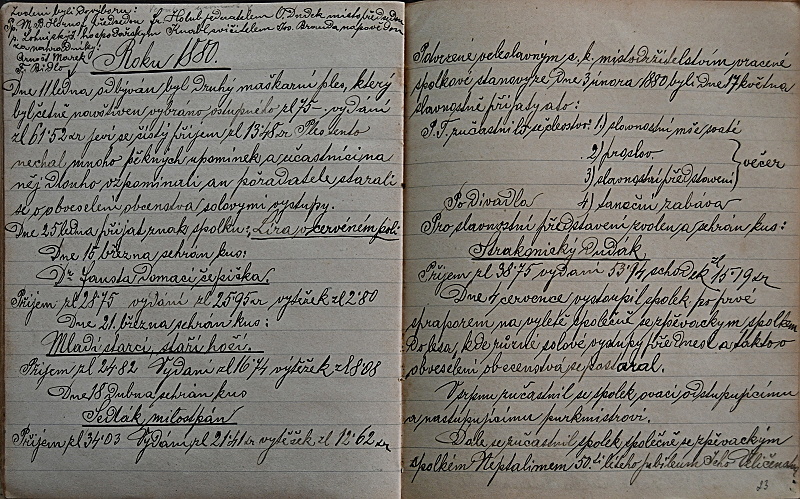 Zvoleni byli do výboru:
Pp. M. B. Hornof předsedou Fr. Holub jednatelem O. Dudek místopředsedou
hospodářským Knabl, učitelem Jos. Brouda nápovědou
za náhradníky:
Arnošt Marek
F. Bidlo
Roku 1880.
Dne 11 ledna odbýván byl druhý maškarní ples, který
byl četně navštíven vybráno vstupného zl 75 – vydání
zl 61·52 kr jeví se čistý příjem zl 13·48 kr Ples tento
nechal mnoho pěkných upomínek a účastníci na
něj dlouho vzpomínali an pořadatelé starali
se o obveselení obecenstva solovými výstupy.
Dne 25 ledna přijat znak spolku: Lira v červeném poli
Dne 15 března sehrán kus:
Dra Fausta domácí čepička.
Příjem zl 28·75 vydání zl 25·95 kr výtěžek zl 2·80
Dne 21. března sehrán kus:
Mladí starci, staří hoši.
Příjem zl 24·82 Vydání zl 16·74 výtěžek zl 8·08
Dne 18 dubna sehrán kus
Sedlák milostpán
Příjem zl 34·03 Vydání zl 21·41 kr výtěžek zl 12·62 kr
Potvrzené veleslavným c. k. místodržitelstvím vrácené
spolkové stanovy ze Dne 3 února 1880 byli dne 17 května
slavnostně přijaty a to:
P. T. zúčastnilo se 1) slavnostní mše svaté
2) proslov.
3) slavnostní představení
večer
Po Divadla 4) taneční zábava
Pro slavnostní představení zvolen a sehrán kus:
Strakonický Dudák,
Příjem zl 38·75 vydání 53·94 schodek zl 15·19 kr
Dne 4 července vystoupil spolek po prvé
s praporem na výletě společně se zpěváckým spolkem
Doleta, kde různé solové výstupy přednesl a takto o
obveselení obecenstva se postaral.
V srpnu zúčastnil se spolek ovaci odstupujícímu
a nastupujícímu purkmistrovi.
Dále se zúčastnil spolek společně se zpěváckým
spolkem Neptalimem 50.ti letého jubileum Jeho Veličenstva
23